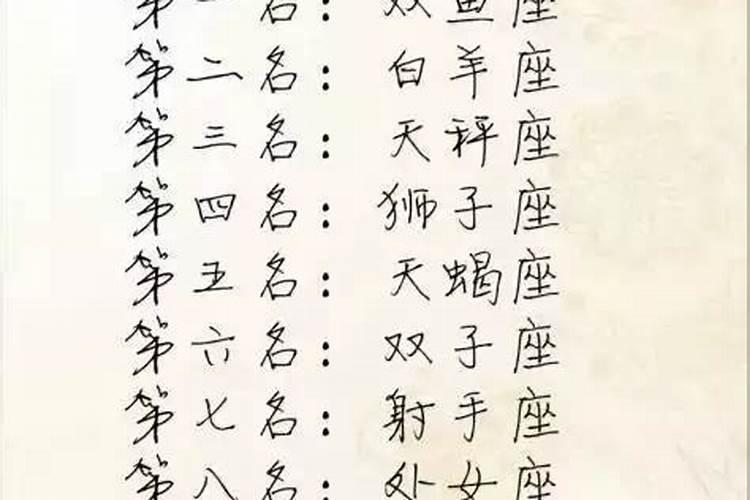 第一名：双鱼座
第二名：白羊座
第三名：天秤座
第四名：狮子座
第五名：天蝎座
第六名：双子座
第七名：射手座
第八名：处女座